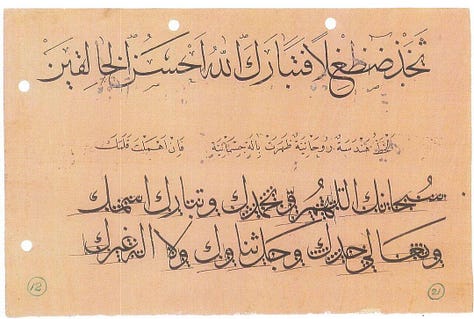 ثَخَذْ ضَظَغِلاً فَتَبَارَكَ اللهُ اَحْسَنُ الْخَالِقِينَ
الخط هندسة روحانية ظهرت بالة جسمانية فان اهملت قلمك
سبحانك اللهم وبحمدك وتبارك اسمك
وتعالى جدك وجل ثناوك ولا اله غيرك
21
12